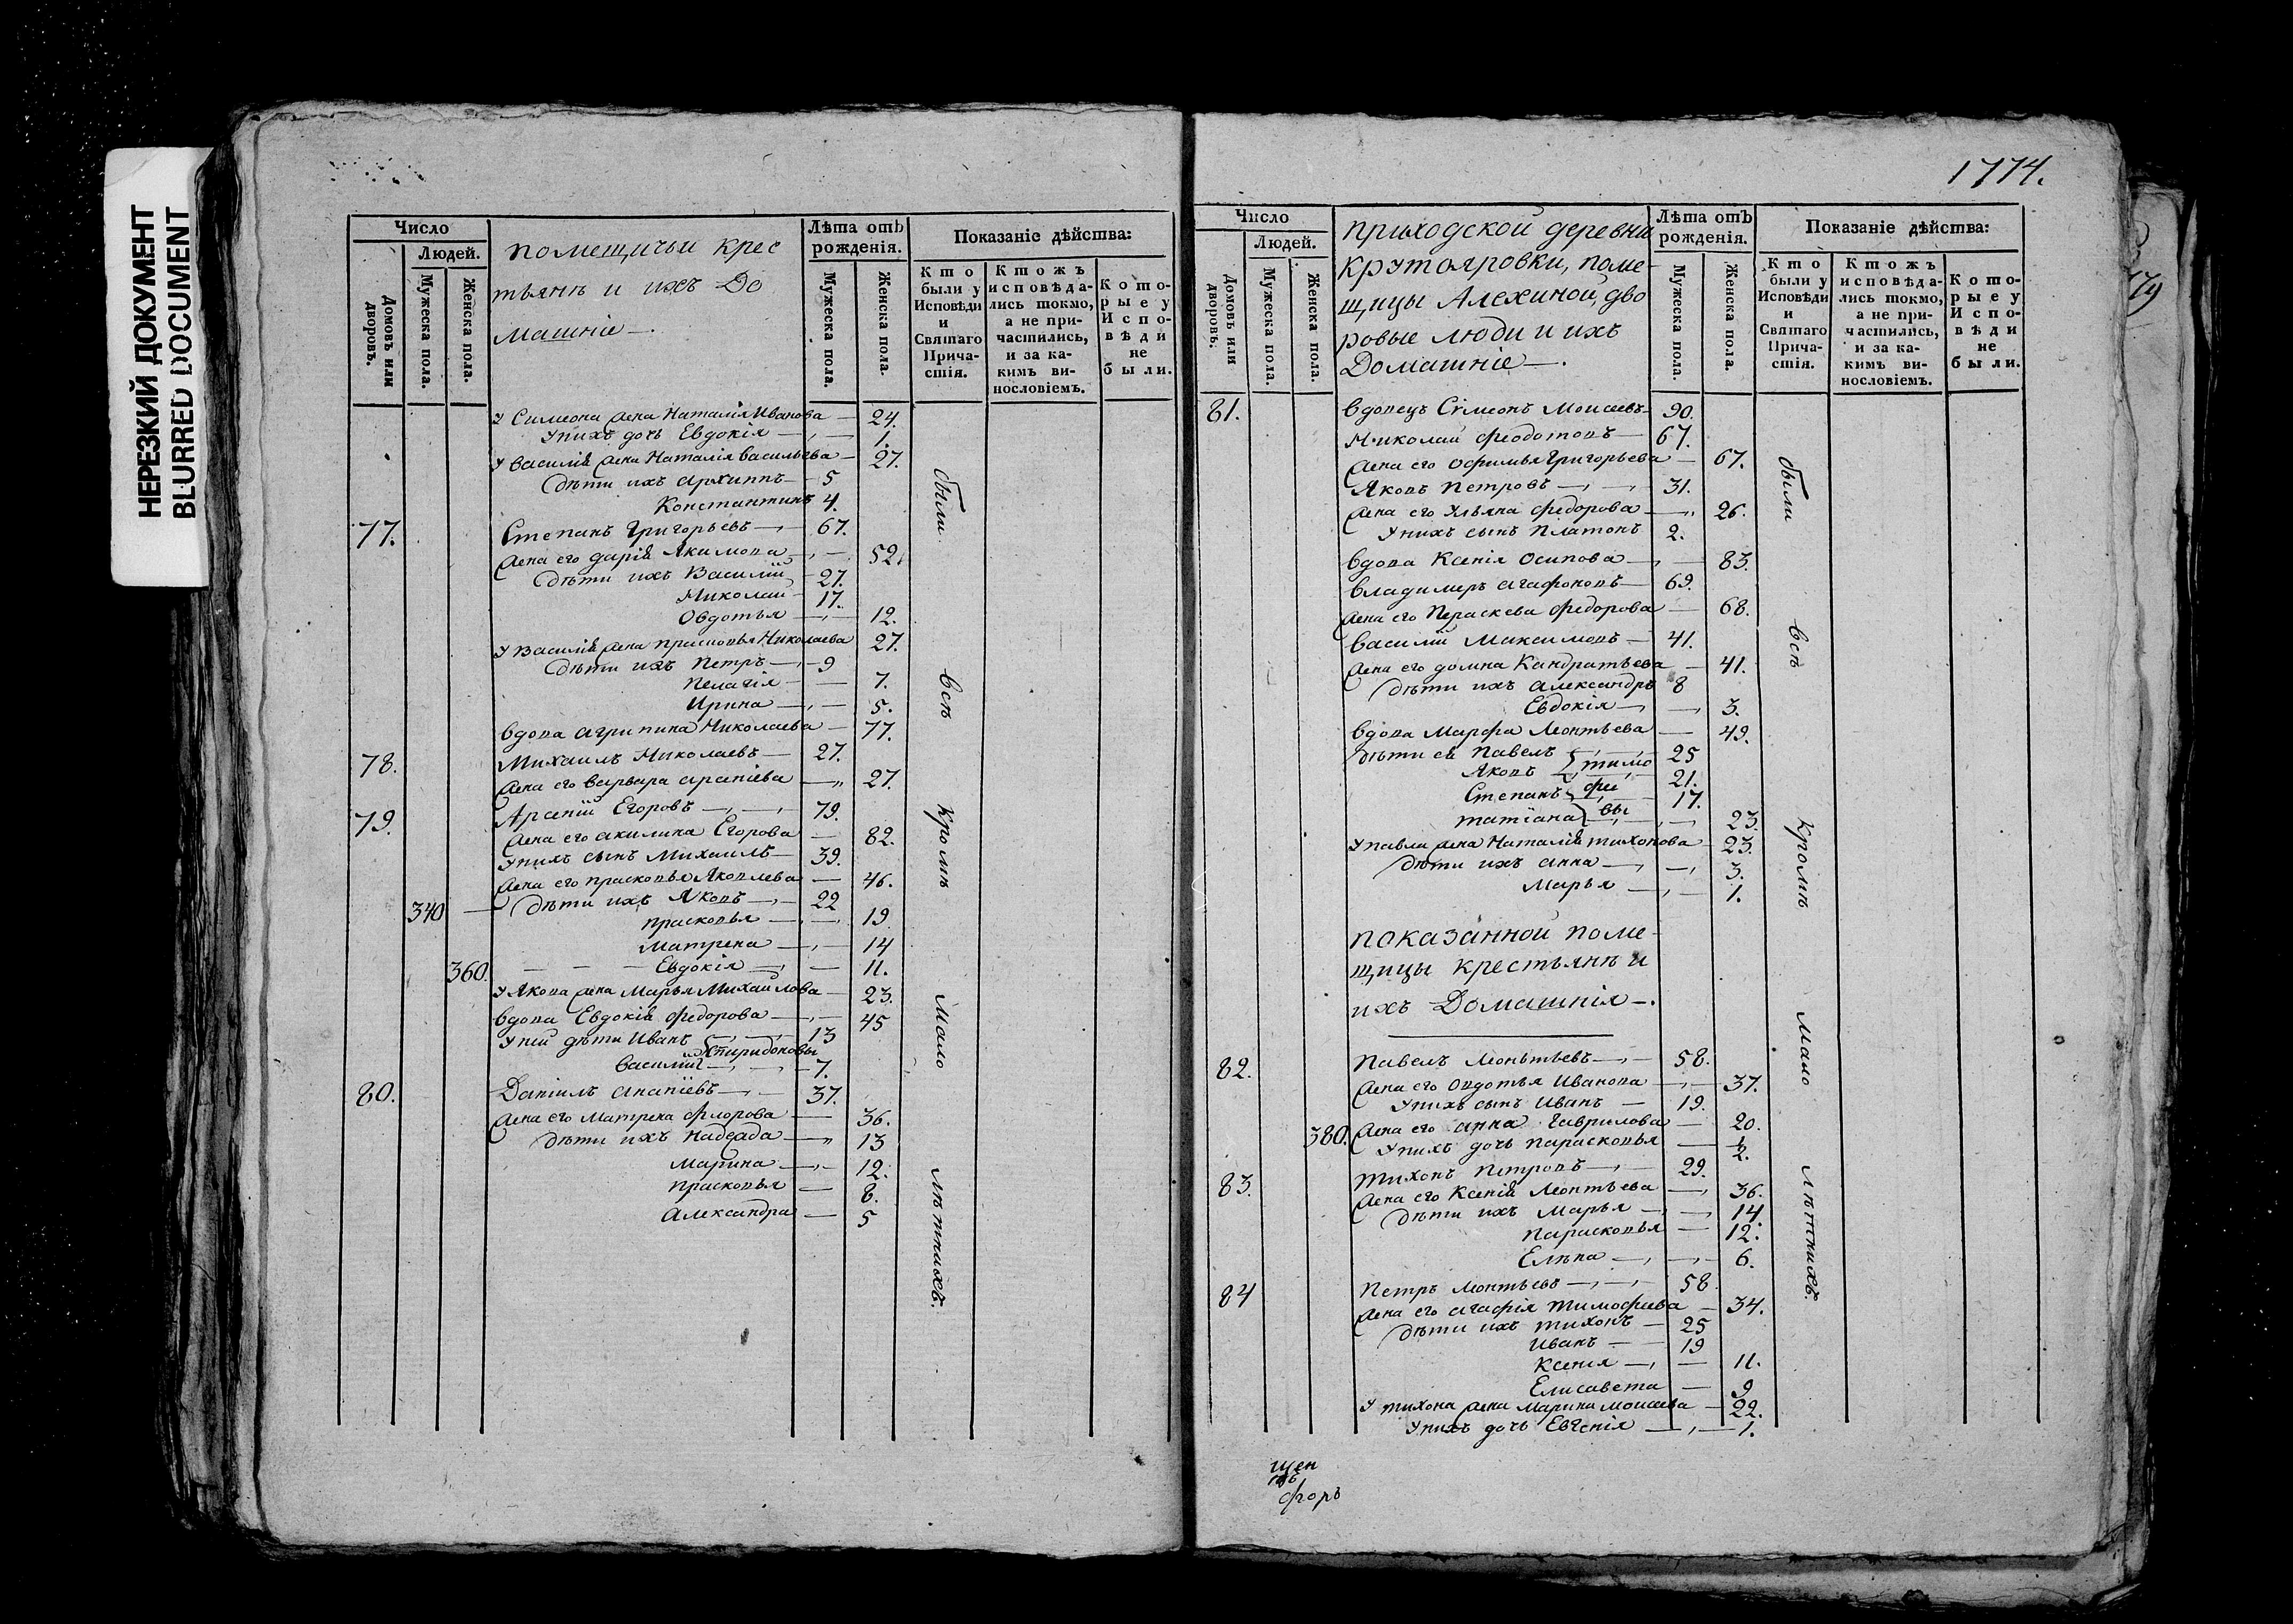 НЕРЕЗКИЙ ДОКУМЕНТ
BLURRED DOCUMENT
Число
Людей.
Домовъ или дворовъ.
Мужеска пола.
Женска пола.
помещичьи крес
тьянѣ и ихъ До
машніе —.
Лѣта отъ рожденія.
Мужеска пола.
Женска пола.
Показаніе дѣйства:
Кто были у Исповѣди и Святаго Прича-стія.
Ктожъ исповѣда-лись токмо, а не при-частились, и за ка-кимъ ви-нословіемъ.
Кото-рые у Испо-вѣди не были.
У Симеона жена Наталія Иванова — 24.
У нихъ дочь Евдокія — 1.
У Василія жена Наталія Васильева — 27.
Дѣти ихъ Архиппъ — 5
Константинъ 4.
77. Степанъ Григорьевъ — 67.
Жена его Дарія Якимова — 52.
Дѣти ихъ Василій 27.
Николай 17.
Овдотья — 12.
У Василія жена Прасковья Николаева 27.
Дѣти ихъ Петръ — 9
Пелагія — 7.
Ирина — 5.
Вдова Агрипина Николаева — 77.
78. Михаилъ Николаевъ — 27.
Жена его Варвара — 27.
79. Арсеній Егоровъ — 79.
Жена его Акилина Егорова — 82.
У нихъ сынъ Михаилъ — 39.
Жена его Прасковья Яковлева — 46.
340 — Дѣти ихъ Яковъ — 22
Прасковья — 19
Матрена — 14
360. — — — Евдокія — 11.
У Якова жена Марья Михайлова — 23.
Вдова Евдокія Федорова — 45
У ней дѣти Иванъ — 13
Спиридоновы
Василій — 7.
80. Даніилъ Ананіевъ — 37.
Жена его Матрена Флорова — 36.
Дѣти ихъ Надежда — 13
Марина — 12.
Прасковья — 8.
Александра — 5
были всѣ кромѣ мало лѣтнихъ.
1774.
Число
Людей.
Домовъ или дворовъ.
Мужеска пола.
Женска пола.
приходской деревни
крутояровки, поме-
щицы Алехиной, дво
ровые люди и ихъ
Домашніе —.
Лѣта отъ рожденія.
Мужеска пола.
Женска пола.
Показаніе дѣйства:
Кто были у Исповѣди и Святаго Прича-стія.
Ктожъ исповѣда-лись токмо, а не при-частились, и за ка-кимъ ви-нословіемъ.
Кото-рые у Испо-вѣди не были.
81. Вдовецъ Сімеонъ Моисеевъ 90.
Николай Феодотовъ — 67.
Жена его Офимья Григорьева — 67.
Яковъ Петровъ — 31.
Жена его Ульяна Федорова — 26.
У нихъ сынъ Платонъ 2.
Вдова Ксенія Осипова — 83.
Владимеръ Агафоновъ — 69.
Жена его Пераскева Федорова — 68.
Василій Максимовъ — 41.
Жена его Домна Кандратьева — 41.
Дѣти ихъ Александръ 8
Евдокія — 3.
Вдова Марфа Леонтьева — 49.
Дѣти ея Павелъ — 25
Яковъ тимо 21.
Степанъ фи 17.
Татіана вы 23.
У Павла жена Наталія Тихонова — 23.
Дѣти ихъ Анна — 3.
Марья — 1.
показанной поме-
щицы крестьянѣ и
ихъ Домашнія —.
82. Павелъ Леонтьевъ — 58.
Жена его Овдотья Иванова — 37.
У нихъ сынъ Иванъ — 19.
380. Жена его Анна Гаврилова — 20.
У нихъ дочь Парасковья — ½.
83. Тихонъ Петровъ — 29.
Жена его Ксенія Леонтьева — 36.
Дѣти ихъ Марья — 14
Парасковья — 12.
Елѣна — 6.
84 Петръ Леонтьевъ — 58
Жена его Агафія Тимофеева — 34.
Дѣти ихъ Тихонъ — 25
Иванъ — 19
Ксенія — 11.
Елисавета — 9
У Тихона жена Марина Моисеева — 22.
У нихъ дочь Евгенія — 1.
были всѣ кромѣ мало лѣтнихъ.